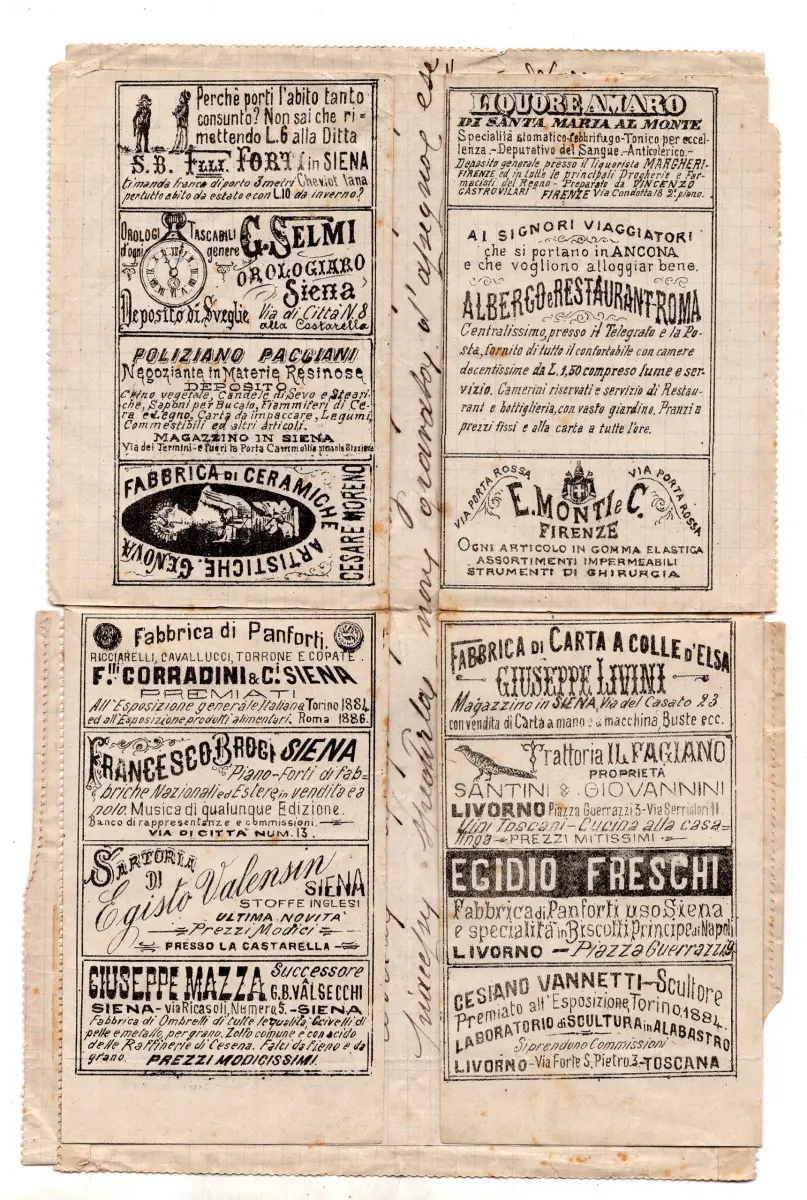 Perchè porti l'abito tanto
consunto? Non sai che ri=
mettendo L.6 alla Ditta
S.B. F.LLI FORTI in SIENA
ti manda franco di porto 3 metri Cheviot lana
per tutto abito da estate e con L.10 da inverno?
OROLOGI TASCABILI
d'ogni genere
G. SELMI
OROLOGIARO
Siena
Deposito di Sveglie
Via di Città N. 8
alla Costarella
POLIZIANO PACCIANI
Negoziante in Materie Resinose
DEPOSITO
Crino vegetale, Candele di Sevo e Steari-
che, Saponi per Bucato, Fiammiferi di Ce-
ra e Legno, Carta da impaccare, Legumi,
Commestibili ed altri articoli.
MAGAZZINO IN SIENA
Via dei Termini-e fuori la Porta Cammollia presso la Stazione
FABBRICA DI CERAMICHE
ARTISTICHE. GENOVA
CESARE MORENO
Fabbrica di Panforti,
RICCIARELLI, CAVALLUCCI, TORRONE E COPATE.
F.lli CORRADINI & C.i SIENA
PREMIATI
All'Esposizione generale Italiana Torino 1884
ed all'Esposizione prodotti alimentari. Roma 1886.
FRANCESCO BROGI SIENA
Piano-Forti di fab=
briche Nazionali ed Estere in vendita e a
nolo. Musica di qualunque Edizione.
Banco di rappresentanze e commissioni.
VIA DI CITTÀ NUM. 13.
SARTORIA
DI
Egisto Valensin
SIENA
STOFFE INGLESI
ULTIMA NOVITA'
Prezzi Modici
PRESSO LA CASTARELLA
GIUSEPPE MAZZA Successore
G.B. VALSECCHI
SIENA-via Ricasoli, Numero, 5.-SIENA
Fabbrica di Ombrelli di tutte le qualità, Crivelli di
pelle e metallo, per grano. Zolfo comune e con acido
delle Raffinerie di Cesena. Falci da fieno e da
grano. PREZZI MODICISSIMI.
LIQUORE AMARO
DI SANTA MARIA AL MONTE
Specialità stomatico-febbrifugo-Tonico per eccel-
lenza.-Depurativo del Sangue.-Anticolerico.-
Deposito generale presso il Liquorista MARGHERI-
FIRENZE ed in tutte le principali Drogherie e Far-
macisti del Regno- Preparato da VINCENZO
CASTROVILARI FIRENZE Via Condotta 18 2° piano.
AI SIGNORI VIAGGIATORI
che si portano in ANCONA
e che vogliono alloggiar bene.
ALBERGO e RESTAURANT-ROMA
Centralissimo, presso il Telegrafo e la Po-
sta, fornito di tutto il confortabile con camere
decentissime da L. 1,50 compreso lume e ser-
vizio. Camerini riservati e servizio di Restau-
rant e bottiglieria, con vasto giardino. Pranzi a
prezzi fissi e alla carta a tutte l'ore.
VIA PORTA ROSSA
VIA PORTA ROSSA
E. MONTI e C.
FIRENZE
OGNI ARTICOLO IN GOMMA ELASTICA
ASSORTIMENTI IMPERMEABILI
STRUMENTI DI CHIRURGIA
FABBRICA DI CARTA A COLLE D'ELSA
GIUSEPPE LIVINI
Magazzino in SIENA, Via del Casato 23
con vendita di Carta a mano e a macchina, Buste ecc.
Trattoria IL FAGIANO
PROPRIETÀ
SANTINI & GIOVANNINI
LIVORNO Piazza Guerrazzi 3-Via Serristori 11
Vini Toscani-Cucina alla casa=
linga PREZZI MITISSIMI
EGIDIO FRESCHI
Fabbrica di Panforti uso Siena
e specialità in Biscotti Principe di Napoli
LIVORNO - Piazza Guerrazzi 9
CESIANO VANNETTI-Scultore
Premiato all'Esposizione, Torino, 1884.
LABORATORIO di SCULTURA in ALABASTRO
Si prendono Commissioni
LIVORNO-Via Forte S. Pietro. 3-TOSCANA